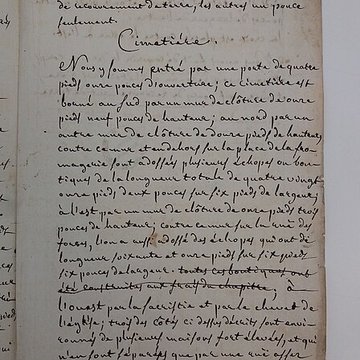 de recouvrement de terre, les autres un pouce
seulement.
Cimetiere.
Nous y sommes entré par une porte de quatre
pieds onze pouces d'ouverture; ce cimetiere est
borné au sud par un mur de clôture de onze
pieds neuf pouces de hauteur; au nord par un
autre mur de clôture de douze pieds de hauteur,
contre ce mur et en dehors sur la place de la fro-
magerie sont adossés plusieurs échopes ou bou-
tiques de la longueur totale de quatre vingt
onze pieds deux pouces sur six pieds de largeur;
à l'est par un mur de clôture de onze pieds trois
pouces de hauteur; contre ce mur sur la rue des
fosses, l'on a aussi adossé des échopes qui ont de
longueur soixante et onze pieds sur six pieds
six pouces de largeur toutes ces boutiques ont
été construites aux frais du chapitre; à
l'ouest par la sacristie et par le chevet de
l'église; trois des côtés ci dessus décrits sont envi-
ronnés de plusieurs maisons fort élevées, et qui
n'en sont séparées que par une rue assez